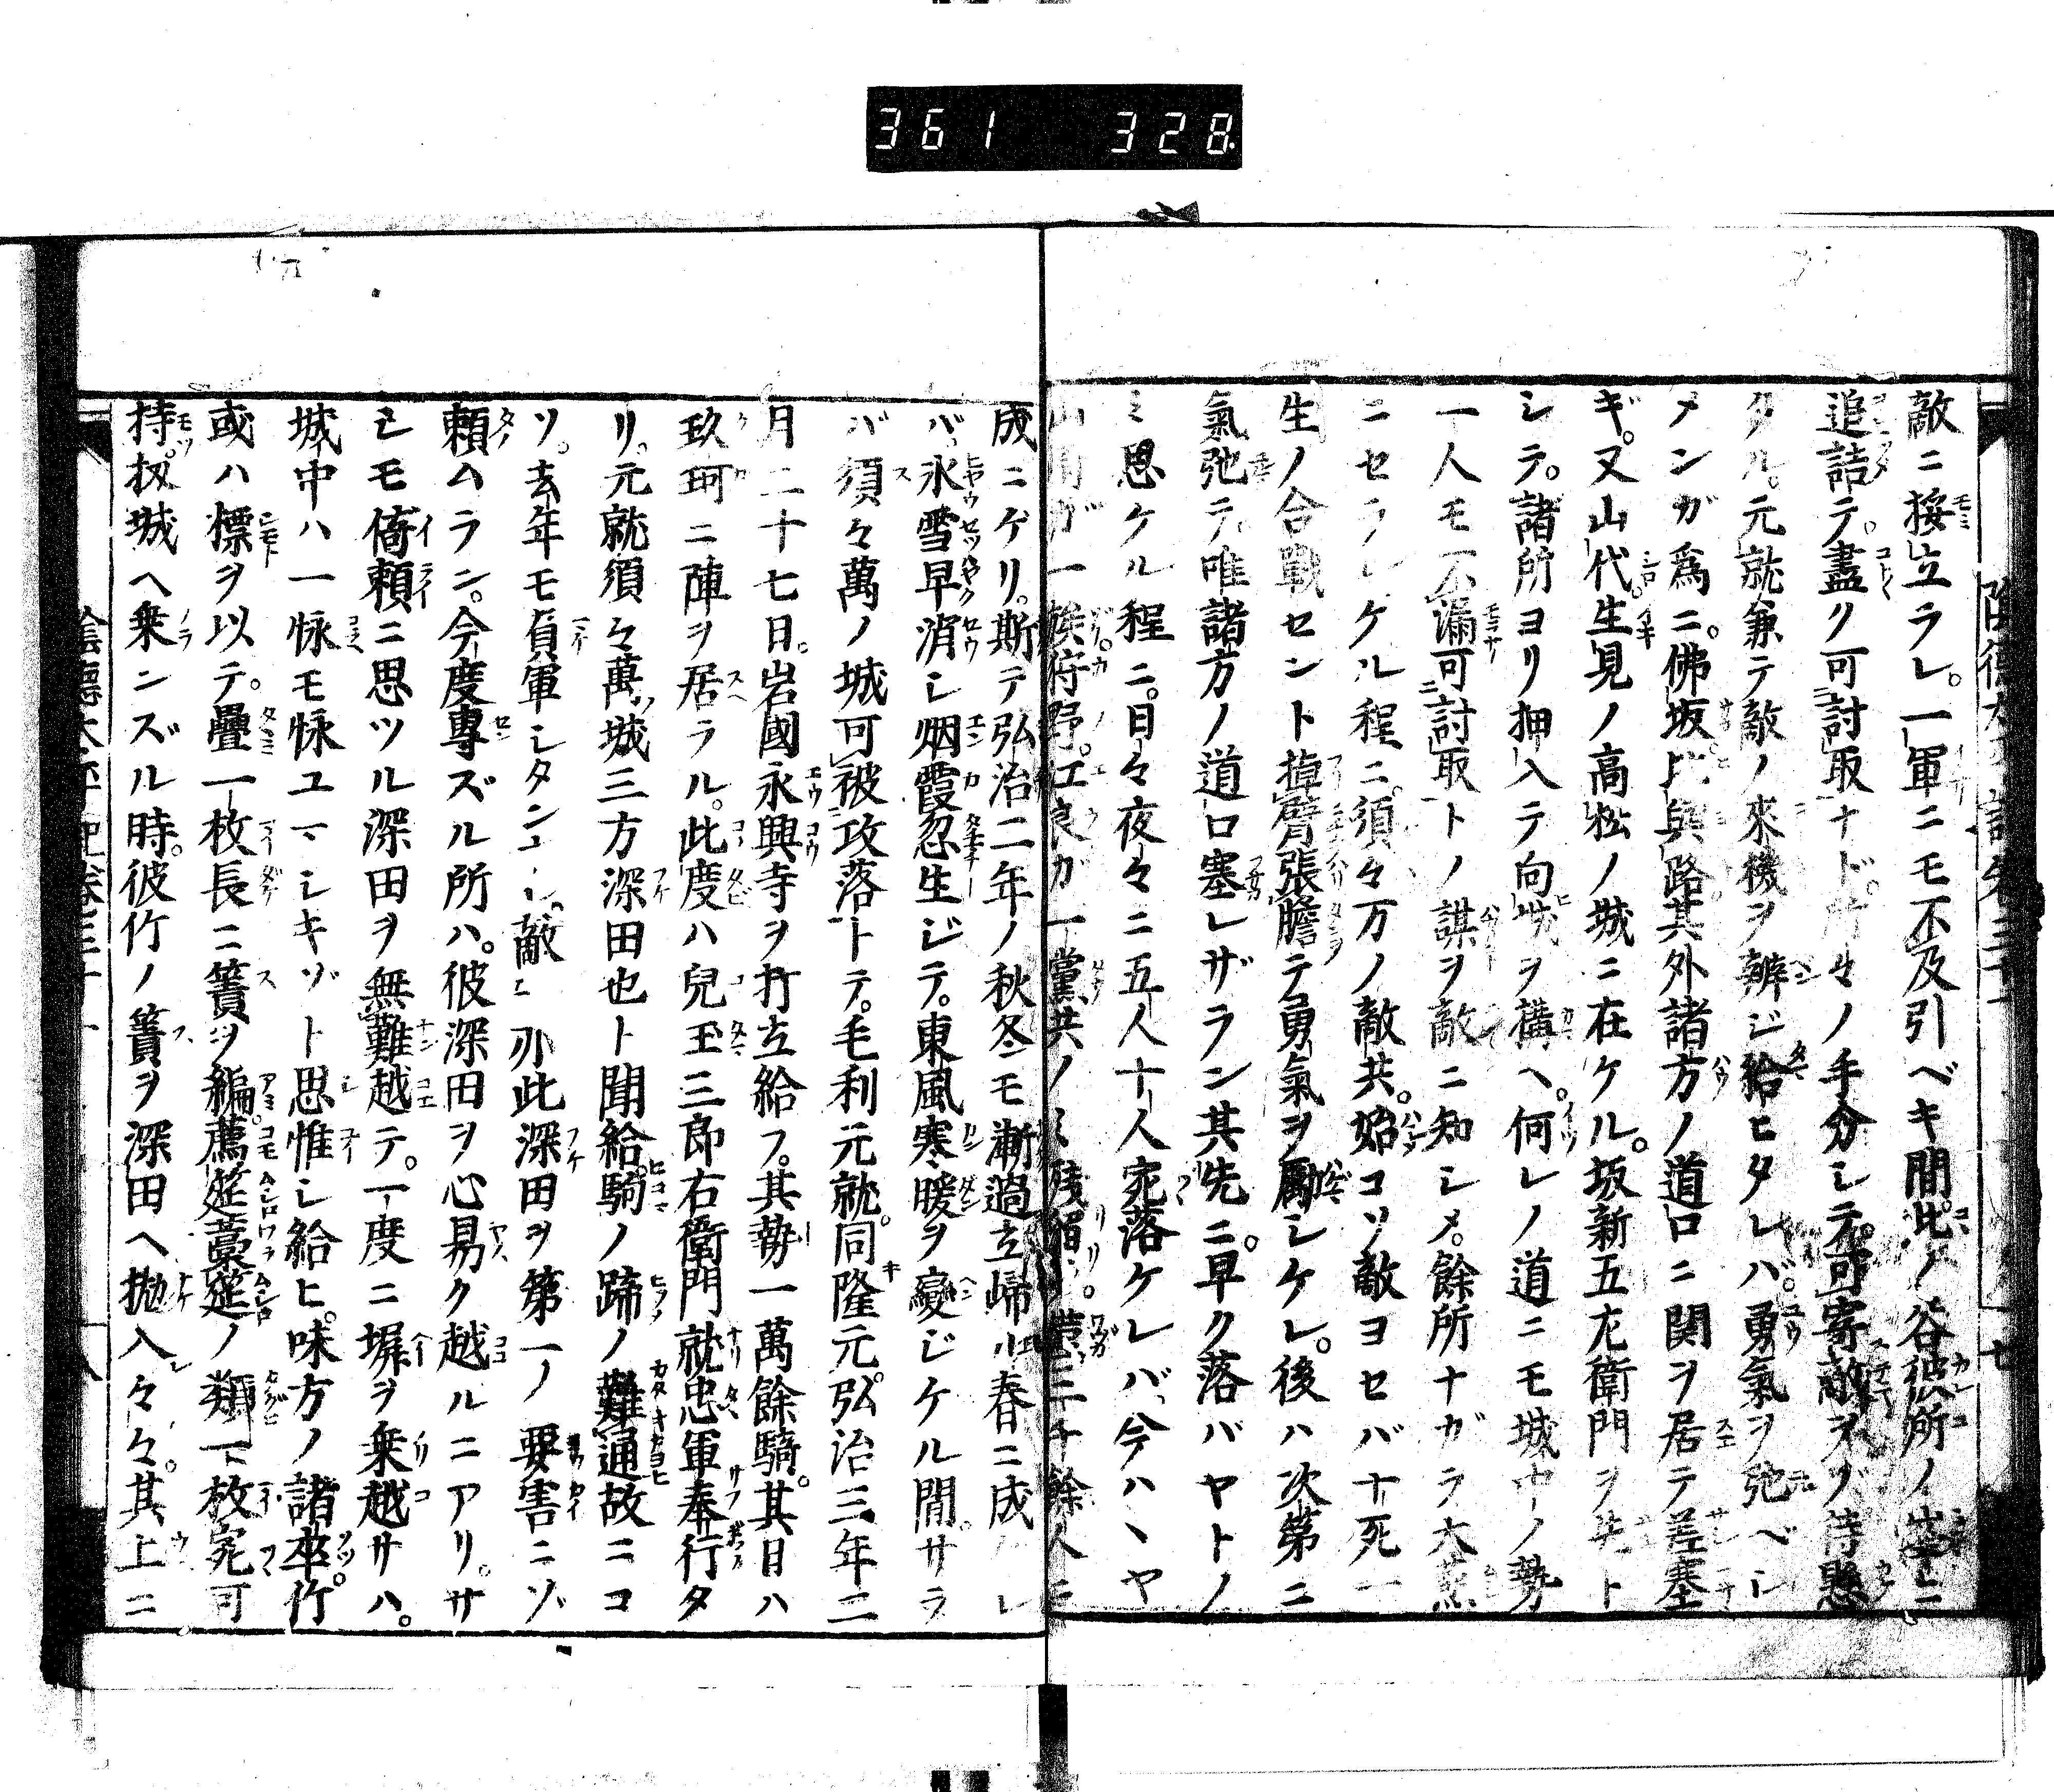 361 328
敵ニ挨立ラレ。一軍ニモ不及引ベキ間。此ノ谷彼所ノ ニ
追詰テ。盡ク可討取ナド。 々ノ手分シテ。可寄敵ヲゾ待懸
タル。元就兼テ敵ノ來機ヲ辨ジ給ヒタレバ。勇氣ヲ弛ベシ
メンガ為ニ。佛坂比與路其外諸方ノ道口ニ関ヲ居テ差塞
ギ。又山代。生見ノ高松ノ城ニ在ケル。坂新五左衛門ヲ先ト
シテ。諸所ヨリ押入テ向城ヲ構ヘ。何レノ道ニモ城中ノ勢
一人モ不漏可討取トノ謀ヲ敵ニ知シメ。餘所ナガラ大
ニセラレケル程ニ。須々万ノ敵共。始コソ敵ヨセバ十死一
生ノ合戰セント掉臂張膽テ勇氣ヲ勵シケレ。後ハ次第ニ
氣弛テ。唯諸方ノ道口塞レザラン其先ニ。早ク落バヤトノ
ミ思ケル程ニ。日々夜々ニ五人十人宛落ケレバ、今ハハヤ
山崎ガ一族。狩野。江良ガ一黨共ノミ残留リ。 三千餘人ニ
成ニゲリ。斯テ弘治二年ノ秋冬モ漸過立帰ル春ニ成 レ
バ、氷雪早消シ烟霞忽生ジテ。東風寒暖ヲ變ジケル間。サラ
バ須々萬ノ城可被攻落トテ。毛利元就。同隆元。弘治三年二
月二十七日。岩國永興寺ヲ打立給フ。其勢一萬餘騎。其日ハ
玖珂ニ陣ヲ居ラル。此度ハ兒玉三郎右衛門就忠軍奉行タ
リ。元就須々萬ノ城三方深田也ト聞給。騎ノ蹄ノ難通故ニコ
ソ。去年モ負軍シタンユレ。敵モ亦此深田ヲ第一ノ要害ニゾ
頼ムラン。今度專ズル所ハ。彼深田ヲ心易ク越ルニアリ。サ
シモ倚頼ニ思ツル深田ヲ無難越テ。一度ニ塀ヲ乗越サハ。
城中ハ一怺モ怺ユマシキゾト思惟シ給ヒ。味方ノ諸卒。竹
或ハ標ヲ以テ。疊一枚長ニ簀ヲ編。薦筵藁筵ノ類一枚宛可
持。扨城ヘ乗ンズル時。彼竹ノ簀ヲ深田ヘ抛入々々。其上ニ
陰徳太平記巻三十 八